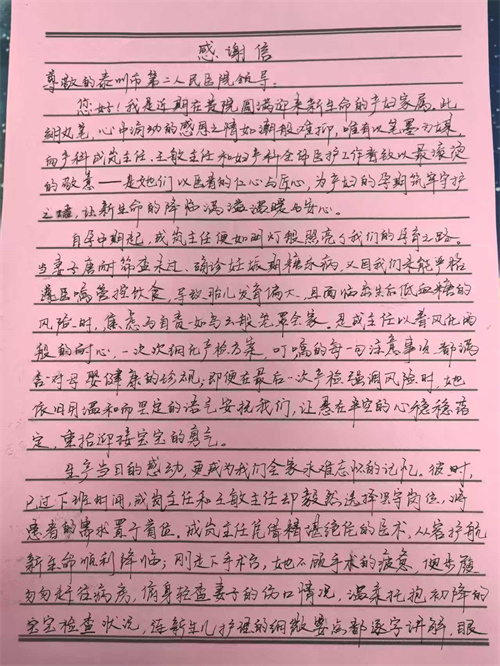 感谢信
尊敬的泰州市第二人民医院领导:
您好!我是近期在贵院圆满迎来新生命的产妇家属。此
刻执笔,心中满动的感恩之情如潮般难抑,唯有以笔墨为媒,
向产科成岚主任、王敏主任和妇产科全体医护工作者致以最滚烫
的敬意——是她们以医者的仁心与匠心,为产妇的孕期筑牢守护
之墙,让新生命的降临满溢温暖与安心。
自孕中期起,成岚主任便如明灯般照亮了我们的孕育之路。
当妻子唐耐筛查未过、确诊妊娠期糖尿病,又因我们未能严格
遵医嘱管控饮食,导致胎儿发育偏大,且面临出生后低血糖的
风险时,焦虑与自责如乌云般笼罩全家。是成主任以春风化雨
般的耐心,一次次细化产检方案,叮嘱的每一句注意事项都满
含对母婴健康的珍视;即便在最后一次产检强调风险时,她
依旧用温和而坚定的语气安抚我们,让悬在半空的心稳稳落
定,重拾迎接宝宝的勇气。
生产当日的感动,更成为我们全家永难忘怀的记忆。彼时,
已过下班时间,成岚主任和王敏主任却毅然选择坚守岗位,将
患者的需求置于首位。成岚主任凭借精湛绝伦的医术,从容护航
新生命顺利降临;刚走下手术台,她不顾手术的疲惫,便步履
匆匆赶往病房,俯身轻查妻子的伤口情况,温柔托抱初降的
宝宝检查状况,连新生儿护理的细微要点都逐字讲解,眼